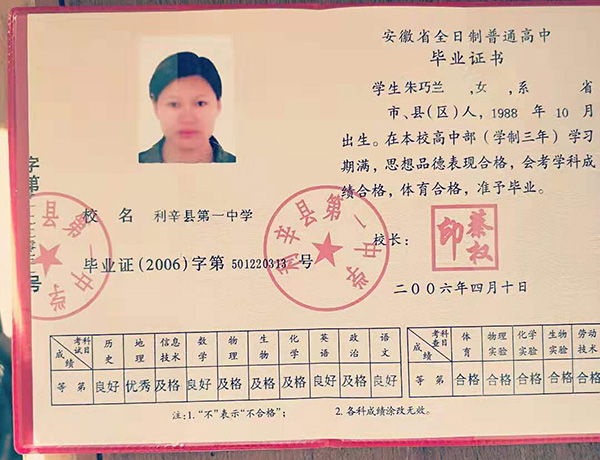 安徽省全日制普通高中
毕业证书
学生朱巧兰 ,女 ,系 省
市、县(区)人, 1988 年 10 月
出生。在本校高中部(学制三年)学习
期满,思想品德表现合格,会考学科成
绩合格,体育合格,准予毕业。
校长:
蔡权印
二〇〇六年四月十日
校 名 利辛县第一中学
毕业证(2006)字第 501220313 号
利辛县第一中学
字第
号
县第一中学
考试科目 历史 地理 信息技术 数学 物理 生物 化学 英语 政治 语文
成绩 等第 良好 优秀 及格 良好 及格 及格 及格 良好 及格 良好
考查科目 体育 物理实验 化学实验 生物实验 劳动技术
成绩 等第 合格 合格 合格 合格 合格
注:1.“不”表示“不合格”; 2.各科成绩涂改无效。